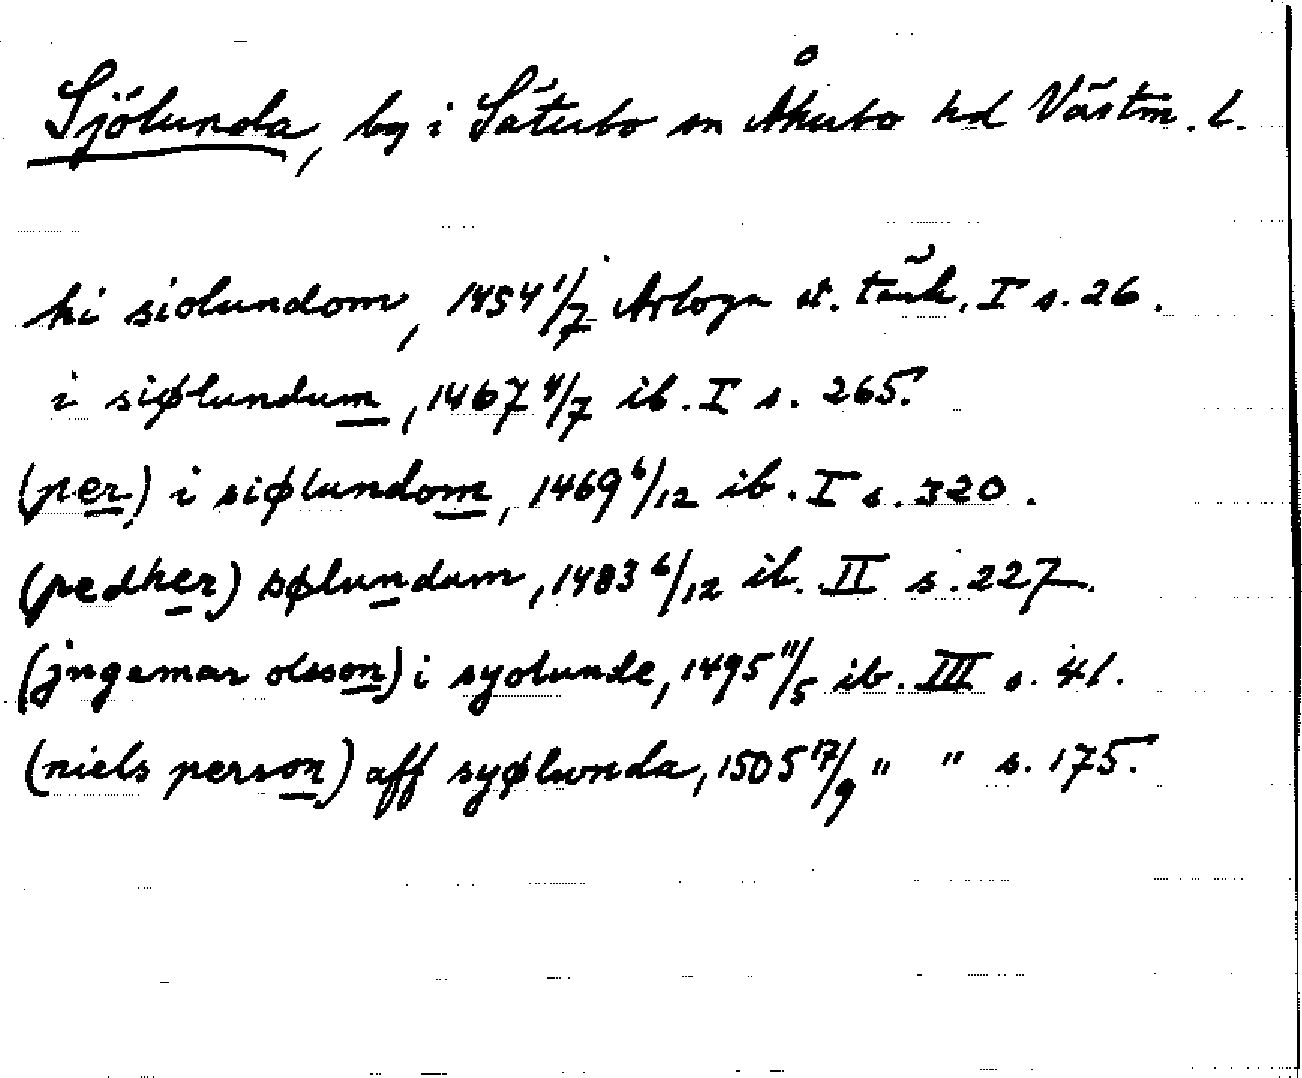 Sjölunda, by i Säterbo sn Åkerbo hd Västm. l.
hi siolundom, 1454 1/7 Arboga st. tänk. I s. 26.
i siølundum, 1467 4/7 ib. I s. 265.
(per) i siølundom, 1469 6/12 ib. I s. 320.
(pedher) sølundum, 1483 6/12 ib. II s. 227.
(jngemar olsson) i syolunde, 1495 11/5 ib. III s. 41.
(niels person) aff syølunda, 1505 17/9 " " s. 175.